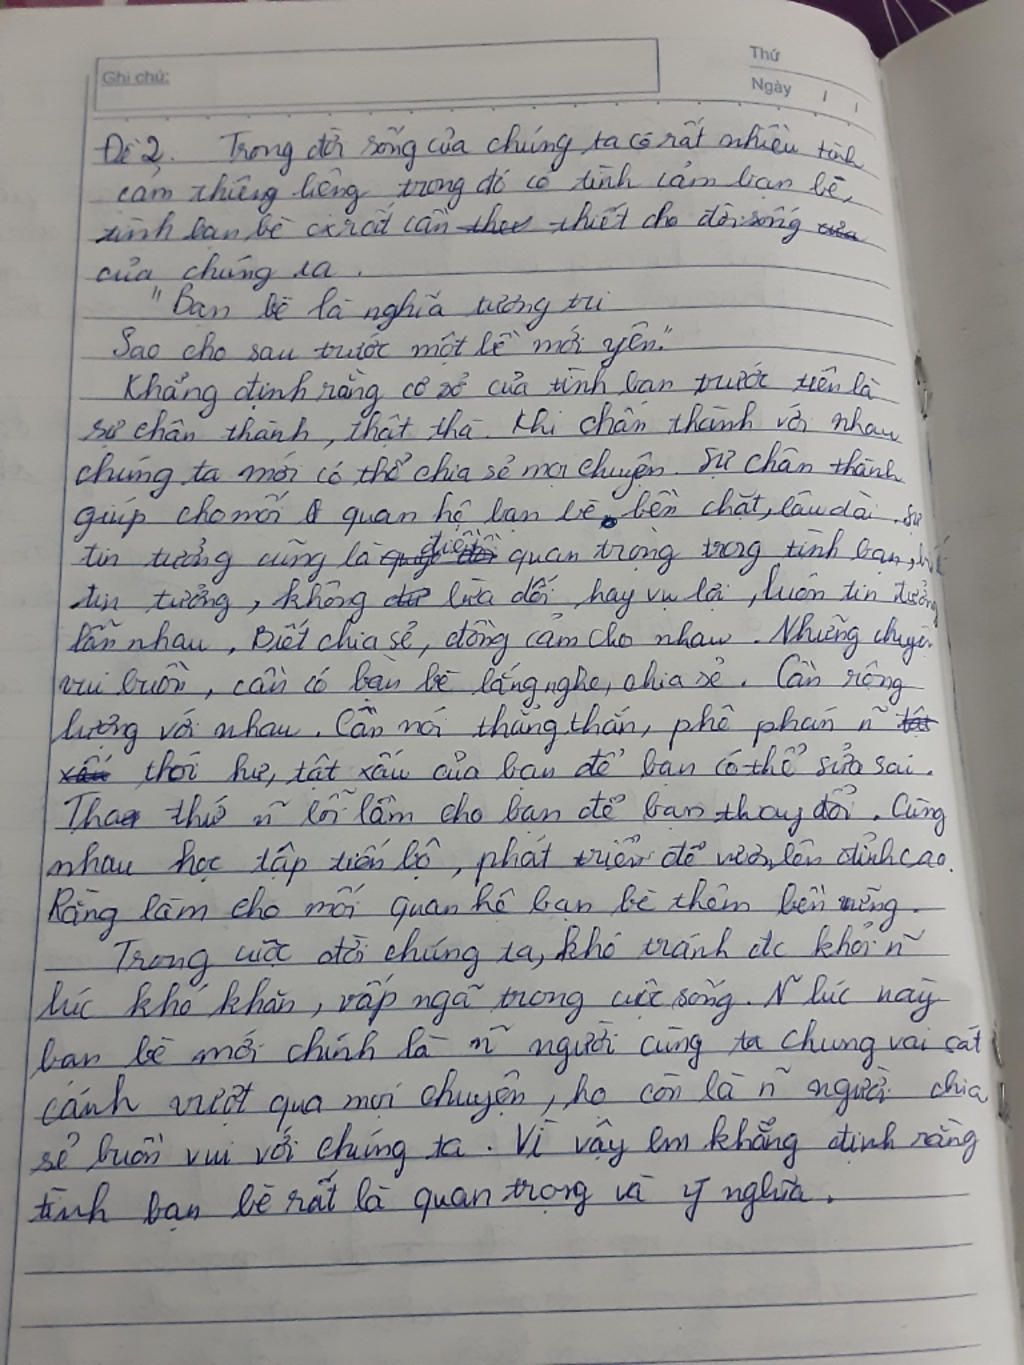 Ghi chú:
Thứ
Ngày / /
Đề 2. Trong đời sống của chúng ta có rất nhiều tình
cảm thiêng liêng trong đó có tình cảm bạn bè,
tình bạn bè cx rất cần thiết cho đời sống
của chúng ta.
"Bạn bè là nghĩa tương tri
Sao cho sau trước một bề mới yên."
Khẳng định rằng cơ sở của tình bạn trước tiên là
sự chân thành, thật thà. Khi chân thành với nhau
chúng ta mới có thể chia sẻ mọi chuyện. Sự chân thành
giúp cho mối quan hệ bạn bè bền chặt, lâu dài. Sự
tin tưởng cũng là điều quan trọng trong tình bạn,
tin tưởng, không lừa dối hay vụ lợi, luôn tin tưởng
lẫn nhau, Biết chia sẻ, đồng cảm cho nhau. Những chuyện
vui buồn, cần có bạn bè lắng nghe, chia sẻ. Cần rộng
lượng với nhau. Cần nói thẳng thắn, phê phán n~
thói hư, tật xấu của bạn để bạn có thể sửa sai.
Tha thứ n~ lỗi lầm cho bạn để bạn thay đổi. Cùng
nhau học tập tiến bộ, phát triển để vươn lên đỉnh cao.
Rằng làm cho mối quan hệ bạn bè thêm bền vững.
Trong cuộc đời chúng ta, khó tránh đc khỏi n~
lúc khó khăn, vấp ngã trong cuộc sống. N~ lúc này
bạn bè mới chính là n~ người cùng ta chung vai sát
cánh vượt qua mọi chuyện, họ còn là n~ người chia
sẻ buồn vui với chúng ta. Vì vậy em khẳng định rằng
tình bạn bè rất là quan trọng và ý nghĩa.